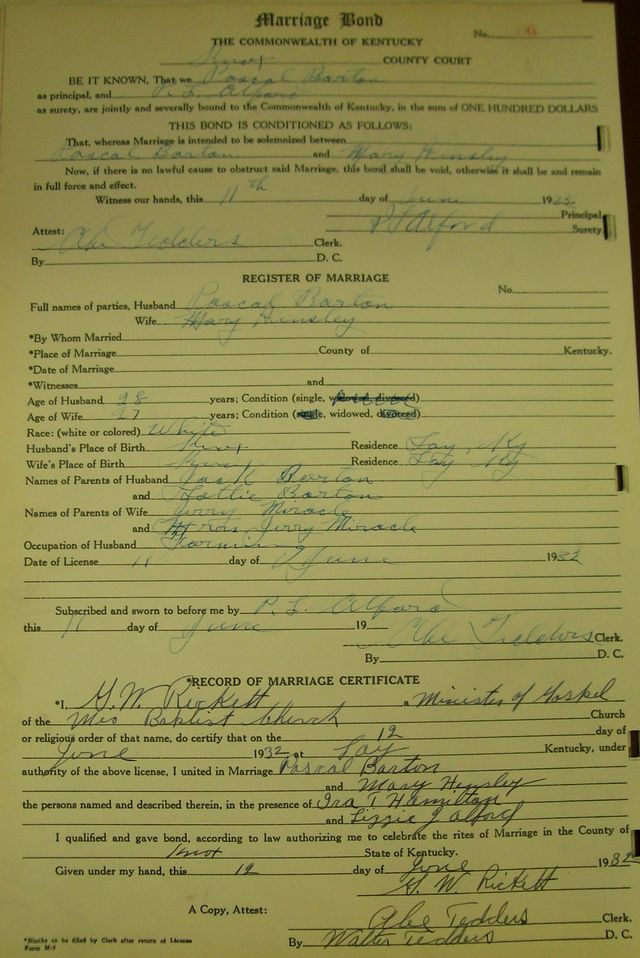 Marriage Bond
No.
THE COMMONWEALTH OF KENTUCKY
Knox COUNTY COURT
BE IT KNOWN, That we Pascal Barton
as principal, and P. L. Alford
as surety, are jointly and severally bound to the Commonwealth of Kentucky, in the sum of ONE HUNDRED DOLLARS
THIS BOND IS CONDITIONED AS FOLLOWS:
That, whereas Marriage is intended to be solemnized between
Pascal Barton and Mary Hensley
Now, if there is no lawful cause to obstruct said Marriage, this bond shall be void, otherwise it shall be and remain
in full force and effect.
Witness our hands, this 11th day of June 1932
Principal
P L Alford Surety
Attest:
Abe Tedders Clerk.
By D. C.
REGISTER OF MARRIAGE
No.
Full names of parties, Husband Pascal Barton
Wife Mary Hensley
*By Whom Married
*Place of Marriage County of Kentucky.
*Date of Marriage
*Witnesses and
Age of Husband 28 years; Condition (single, widowed, divorced)
Age of Wife 27 years; Condition (single, widowed, divorced)
Race: (white or colored) White
Husband's Place of Birth Knox Residence Lay, Ky
Wife's Place of Birth Knox Residence Lay Ky
Names of Parents of Husband Jack Barton
and Hollie Barton
Names of Parents of Wife Jerry Miracle
and Mrs Jerry Miracle
Occupation of Husband Farming
Date of License 11 day of June 1932
Subscribed and sworn to before me by P. L. Alford
this 11 day of June 19
Abe Tedders Clerk.
By D. C.
*RECORD OF MARRIAGE CERTIFICATE
*I, G. W. Rickett a Minister of Gospel
of the Miss Baptist Church Church
or religious order of that name, do certify that on the 12 day of
June 1932 at Lay Kentucky, under
authority of the above license, I united in Marriage Pascal Barton
and Mary Hensley
the persons named and described therein, in the presence of Ira T Hamilton
and Lizzie J Alford
I qualified and gave bond, according to law authorizing me to celebrate the rites of Marriage in the County of
Knox State of Kentucky.
Given under my hand, this 12 day of June 1932
G. W. Rickett
A Copy, Attest:
Abe Tedders Clerk.
By Walter Tedders D. C.
*Blanks to be filled by Clerk after return of License
Form M-7